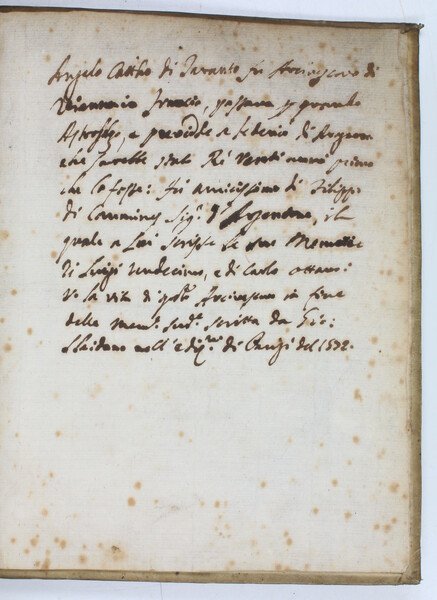 Angelo Cattho di Taranto fu Arcivescovo di
Vienna in Francia, passava p grande
Astrologo, e previdde a Federico di Aragona
che sarebbe stato Ré venti anni primo
che lo fosse: fu amicissimo di Filippo
di Commines Sigr. d'Argentone, il
quale a lui scrisse le sue Memorie
di Luigi undecimo, e di Carlo ottavo:
Vi è la vita di qsto Arcivescovo in fine
delle mem.e sud.e scritta da Gio:
Sleidano nell'ediz.ne di Parigi del 1552.